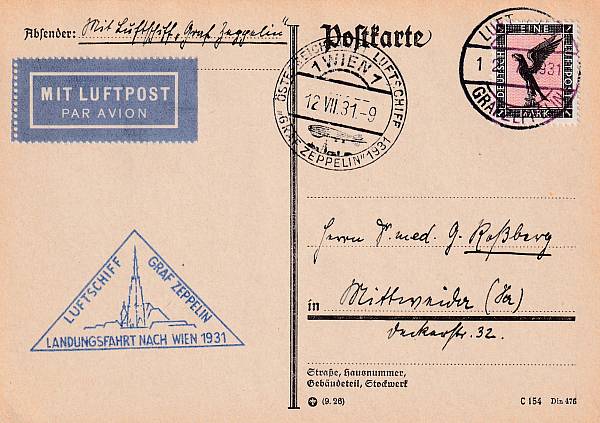 Absender: Mit Luftschiff „Graf Zeppelin“
Postkarte
MIT LUFTPOST
PAR AVION
ÖSTERREICH LUFTSCHIFF
1 WIEN 1
12. VII. 31.-9
"GRAF ZEPPELIN" 1931
LUFT
1 1931
GRAF ZEPPELIN
EINE
DEUTSCHE
FLUGPOST
MARK
LUFTSCHIFF GRAF ZEPPELIN
LANDUNGSFAHRT NACH WIEN 1931
Herrn Dr. med. G. Roßberg
in Mittweida (Sa)
Deckerstr. 32.
Straße, Hausnummer,
Gebäudeteil, Stockwerk
(9. 26)
C 154 Din 476